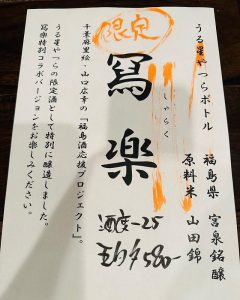 うる星やつらボトル
福島県 宮泉銘醸
原料米 山田錦
限定
しゃらく
冩楽
酒度-25
580-
千葉麻里絵・山口広幸の『福島酒応援プロジェクト』。
うる星やつらの限定酒として特別に醸造しました。
冩楽特別コラボバージョンをお楽しみください。